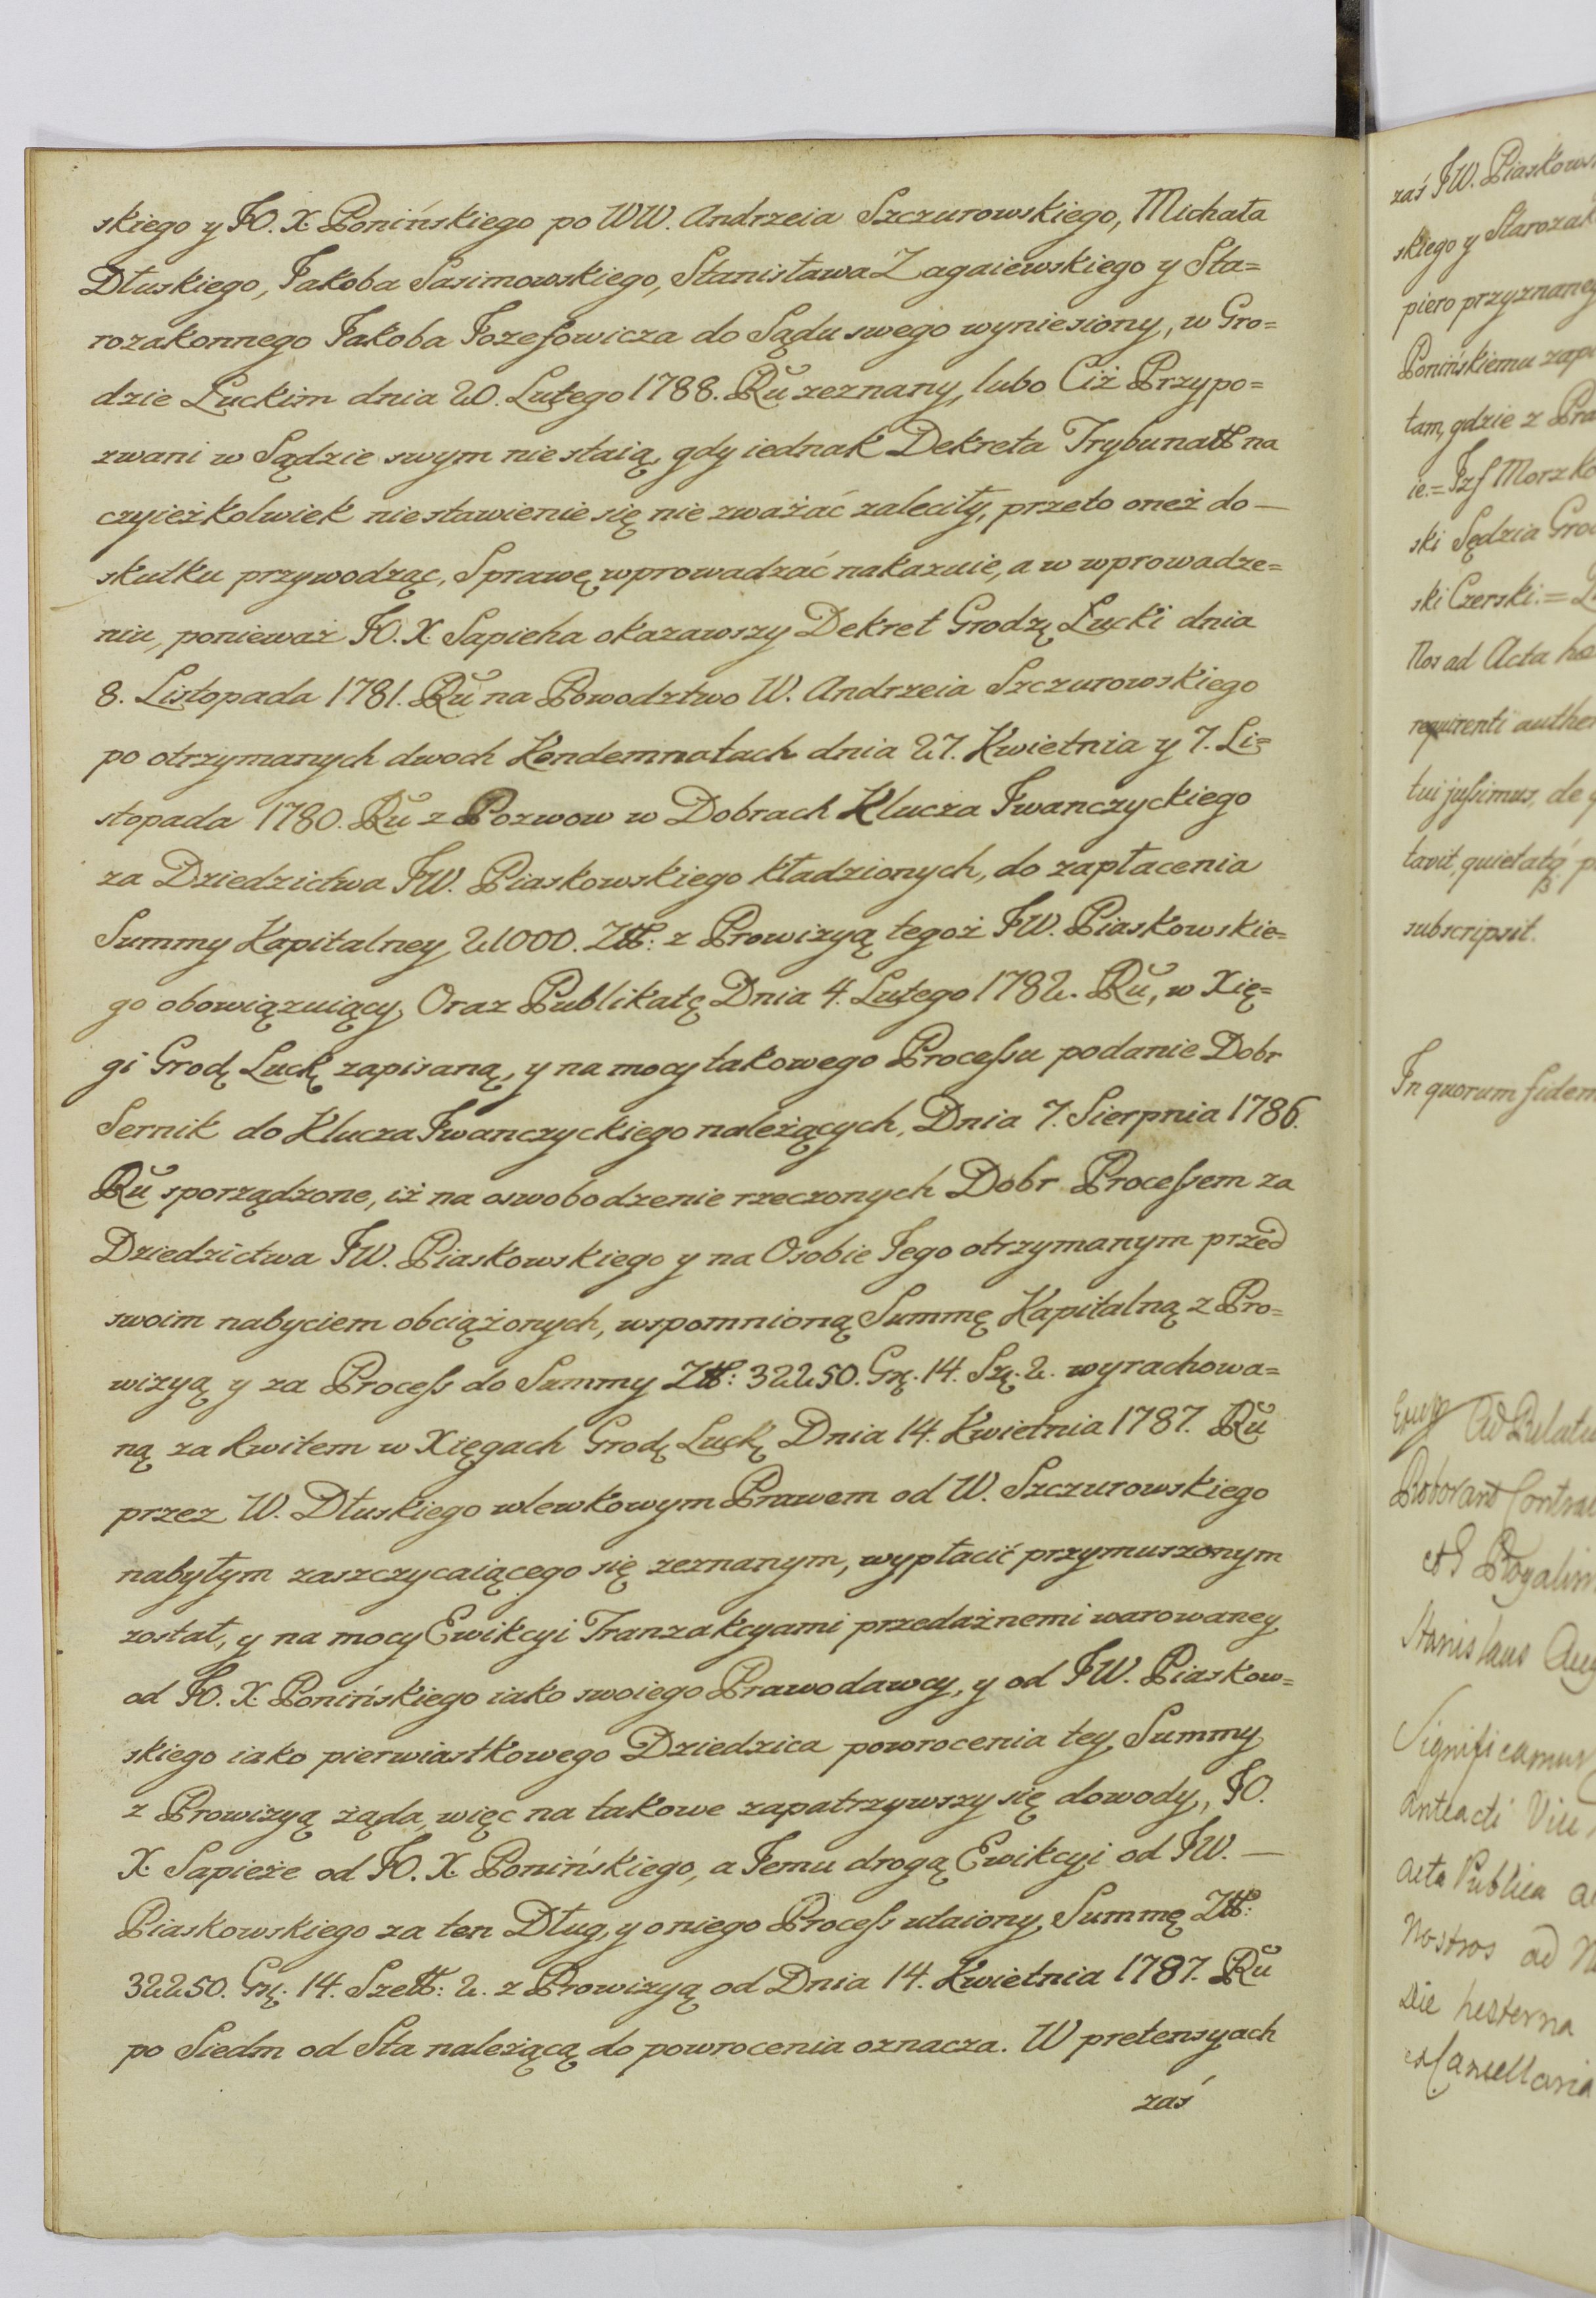 skiego y JO. X. Ponińskiego po WW. Andrzeia Szczurowskiego, Michała
Dłuskiego, Jakoba Sasimowskiego, Stanisława Zagaiewskiego y Sta=
rozakonnego Jakoba Jozefowicza do Sądu swego wyniesiony, w Gro=
dzie Łuckim dnia 20. Lutego 1788. Ru zeznany, lubo Ciż Przypo=
zwani w Sądzie swym nie staią, gdy iednak Dekreta Trybunałł na
czyieżkolwiek nie stawienie się nie zważać zaleciły, przeto oneż do —
skutku przywodząc, Sprawę wprowadzać nakazuie, a w wprowadze=
niu, ponieważ JO. X. Sapieha okazawszy Dekret Grodz Łucki dnia
8. Listopada 1781. Ru na Powodztwo W. Andrzeia Szczurowskiego
po otrzymanych dwoch Kondemnatach dnia 27. Kwietnia y 7. Li=
stopada 1780. Ru z Pozwow w Dobrach Klucza Iwanczyckiego
za Dziedzictwa JW. Piaskowskiego kładzionych, do zapłacenia
Summy Kapitalney 21000. Złł: z Prowizyą tegoż JW. Piaskowskie=
go obowiązuiący, Oraz Publikatę Dnia 4. Lutego 1782. Ru, w Xię=
gi Grod Łuck zapisaną, y na mocy takowego Processu podanie Dobr
Sernik do Klucza Iwanczyckiego należących, Dnia 7. Sierpnia 1786.
Ru sporządzone, iż na oswobodzenie rzeczonych Dobr Processem za
Dziedzictwa JW. Piaskowskiego y na Osobie Jego otrzymanym przed
swoim nabyciem obciążonych, wspomnioną Summę Kapitalną z Pro=
wizyą y za Process do Summy Złł: 32250. Gr. 14. Sz. 2. wyrachowa=
ną za kwitem w Xięgach Grod Łuck Dnia 14. Kwietnia 1787. Ru
przez W. Dłuskiego wlewkowym Prawem od W. Szczurowskiego
nabytym zaszczycaiącego się zeznanym, wypłacić przymuszonym
został, y na mocy Ewikcyi Tranzakcyami przedażnemi warowaney
od JO. X. Ponińskiego iako swoiego Prawodawcy, y od JW. Piaskow=
skiego iako pierwiastkowego Dziedzica powrocenia tey Summy
z Prowizyą żąda, więc na takowe zapatrzywszy się dowody, JO.
X. Sapieże od JO. X. Ponińskiego, a Jemu drogą Ewikcyi od JW. —
Piaskowskiego za ten Dług, y o niego Process utaiony, Summę Złł:
32250. Gr. 14. Szełł: 2. z Prowizyą od Dnia 14. Kwietnia 1787. Ru
po Siedm od Sta należącą do powrocenia oznacza. W pretensyach
zaś
zaś JW. Piaskows
skiego y Starozak
piero przyznaney
Ponińskiemu zap
tam, gdzie z Pra
ie.= Jzf Morzko
ski Sędzia Grod
ski Czerski.=
Nos ad Acta hæ
requirenti authen
tui jussimus, de
tavit, quietatq
subscripsit.
In quorum fidem
Ad Relatu
Roborans Contrac
Stanislaus Aug
Significamus
anteacti
acta Publica
Nostros ad
die hesterna
Cancellaria